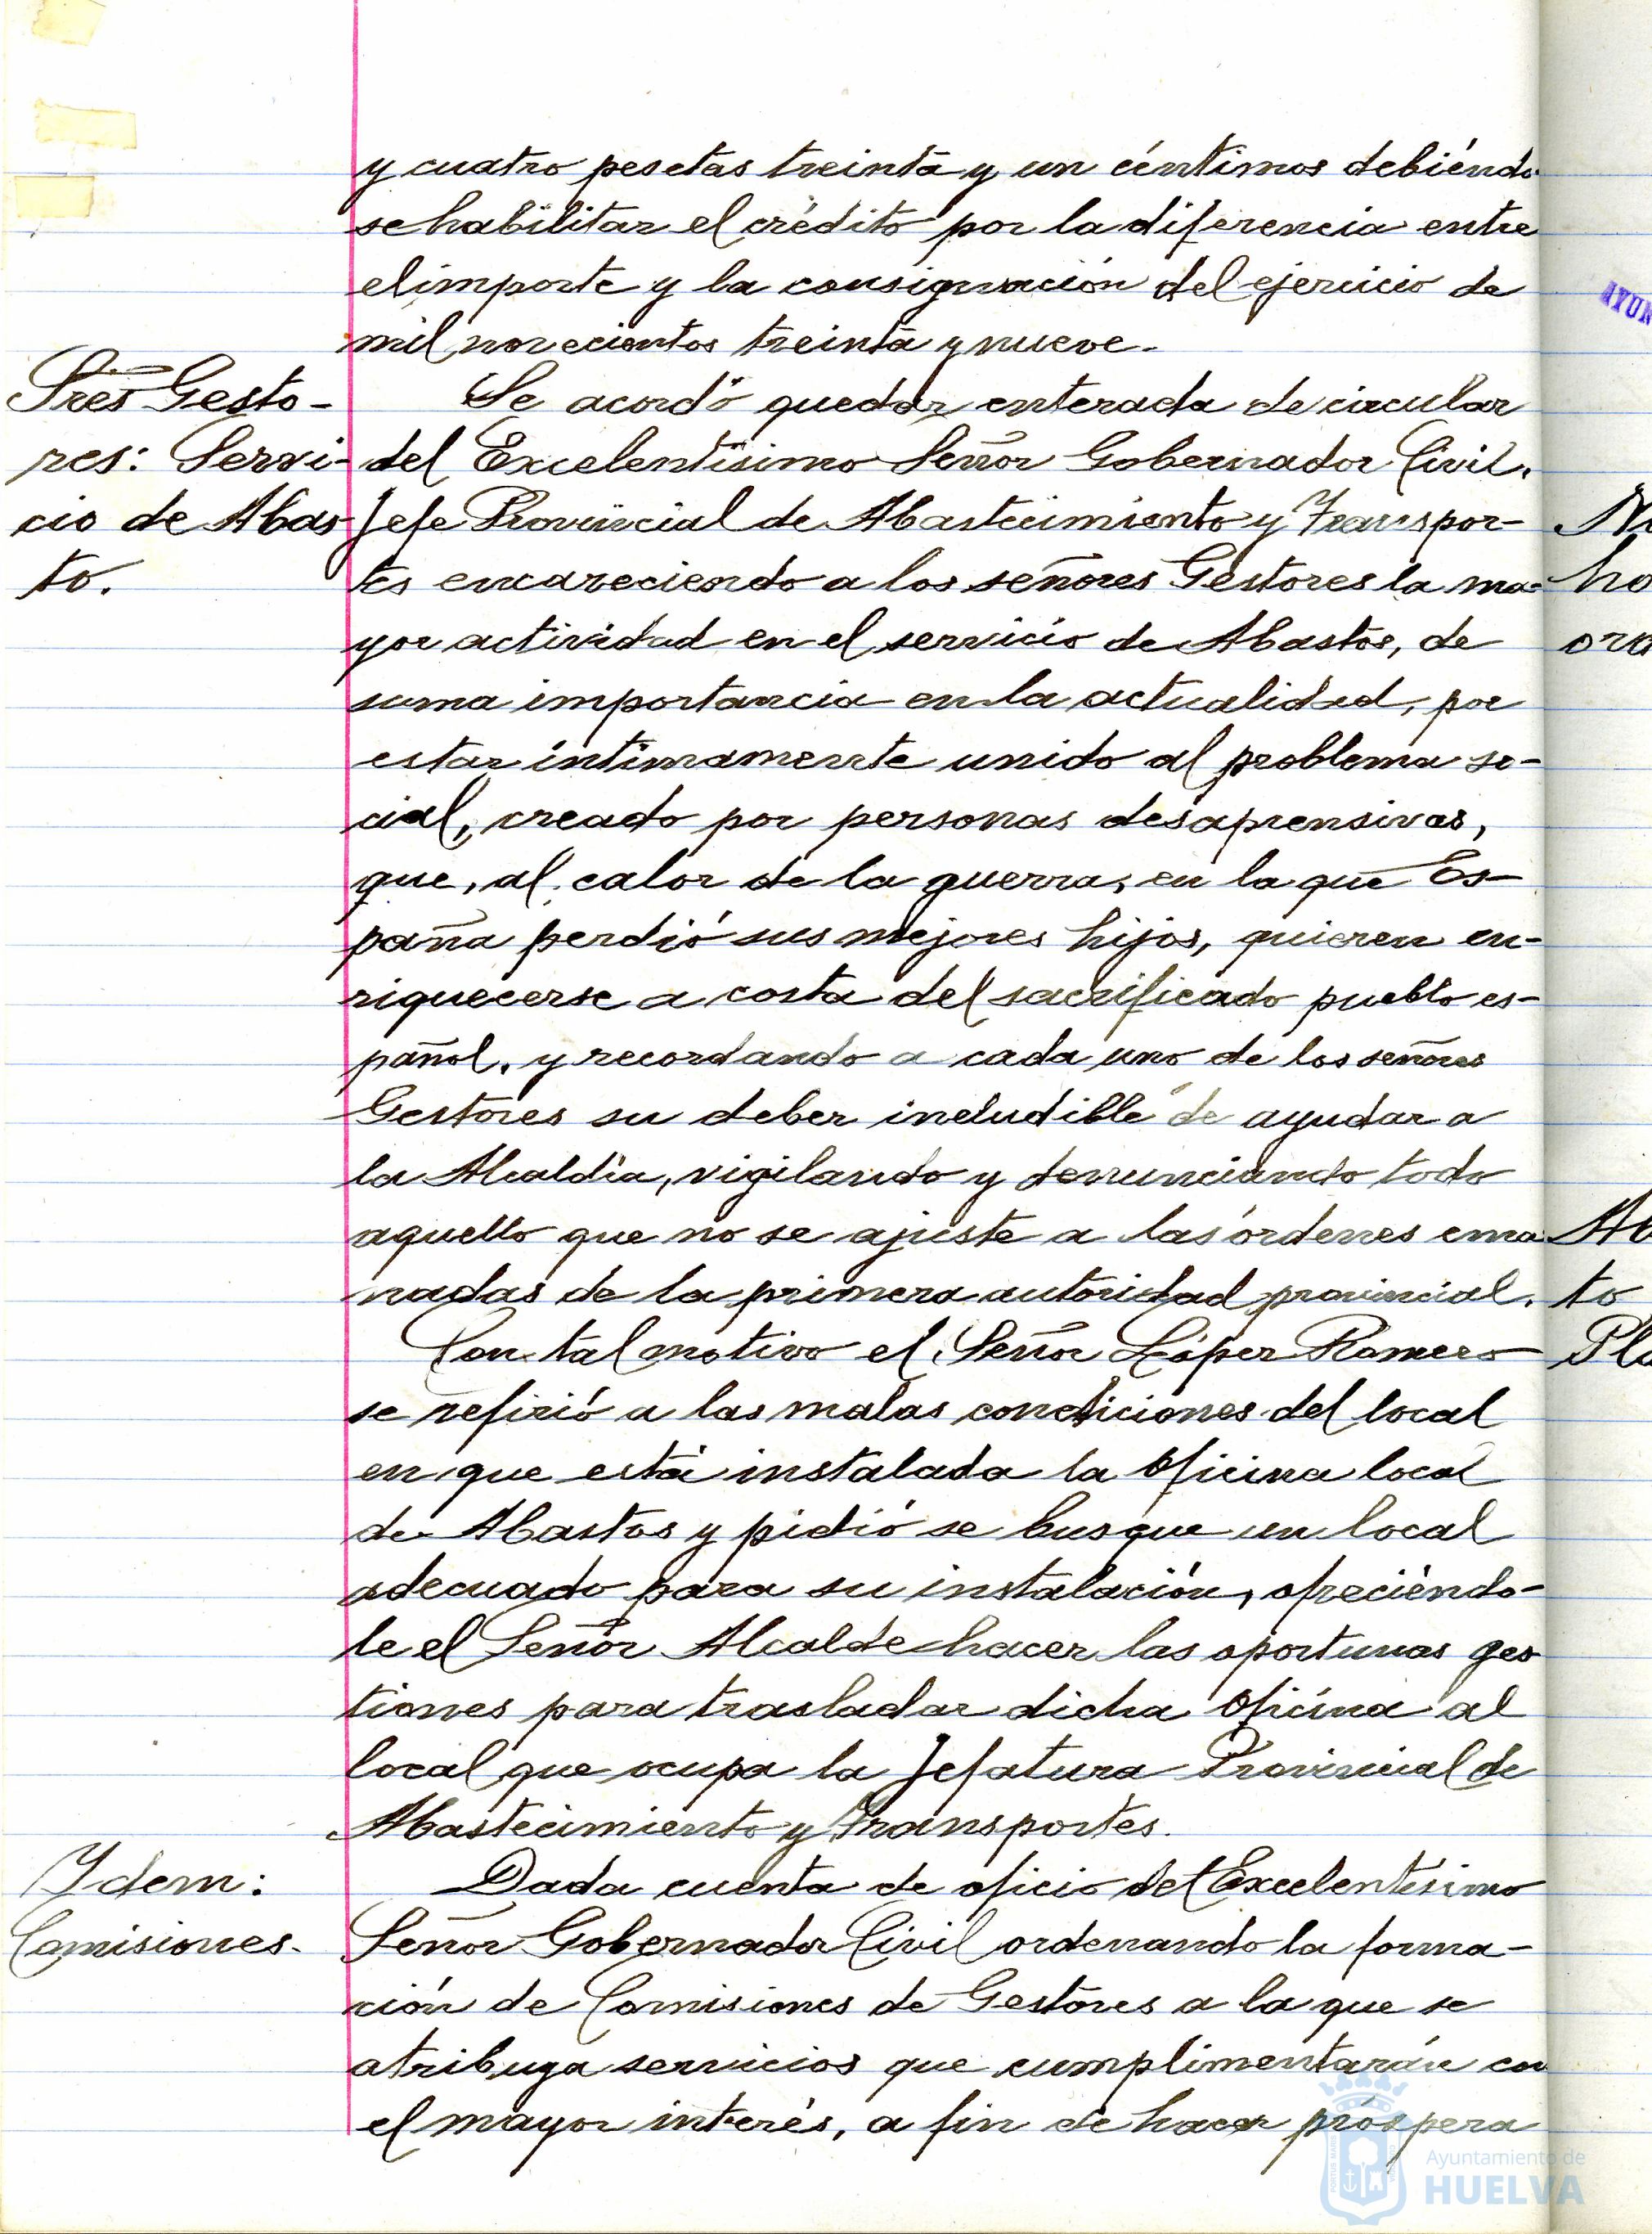 y cuatro pesetas treinta y un céntimos debiéndo
se habilitar el crédito por la diferencia entre
el importe y la consignación del ejercicio de
mil novecientos treinta y nueve.
Sres Gesto-
res: Servi-
cio de Abas
to.
Se acordó quedar enterada de circular
del Excelentísimo Señor Gobernador Civil,
Jefe Provincial de Abastecimiento y Transpor-
tes encareciendo a los señores Gestores la ma-
yor actividad en el servicio de Abastos, de
suma importancia en la actualidad, por
estar íntimamente unido al problema so-
cial, creado por personas desaprensivas,
que, al calor de la guerra, en la que Es-
paña perdió sus mejores hijos, quieren en-
riquecerse a costa del sacrificado pueblo es-
pañol, y recordando a cada uno de los señores
Gestores su deber ineludible de ayudar a
la Alcaldía, vigilando y denunciando todo
aquello que no se ajuste a las órdenes ema-
nadas de la primera autoridad provincial.
Con tal motivo el Señor López Romero
se refirió a las malas condiciones del local
en que está instalada la Oficina local
de Abastos y pidió se busque un local
adecuado para su instalación, ofreciéndo-
le el Señor Alcalde hacer las oportunas ges
tiones para trasladar dicha Oficina al
local que ocupa la Jefatura Provincial de
Abastecimiento y Transportes.
Ydem:
Comisiones.
Dada cuenta de oficio del Excelentísimo
Señor Gobernador Civil ordenando la forma-
ción de Comisiones de Gestores a la que se
atribuya servicios que cumplimentarán con
el mayor interés, a fin de hacer próspera
AYUN
ho
ora
to
Pla
Ayuntamiento de
HUELVA